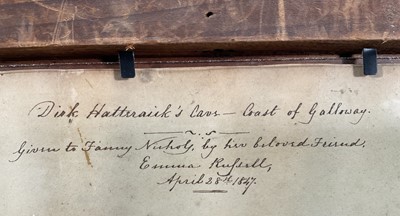 Dirk Hatteraick's Cave — Coast of Galloway.
Given to Fanny Nichols, by her beloved Friend,
Emma Russell,
April 28th 1847.